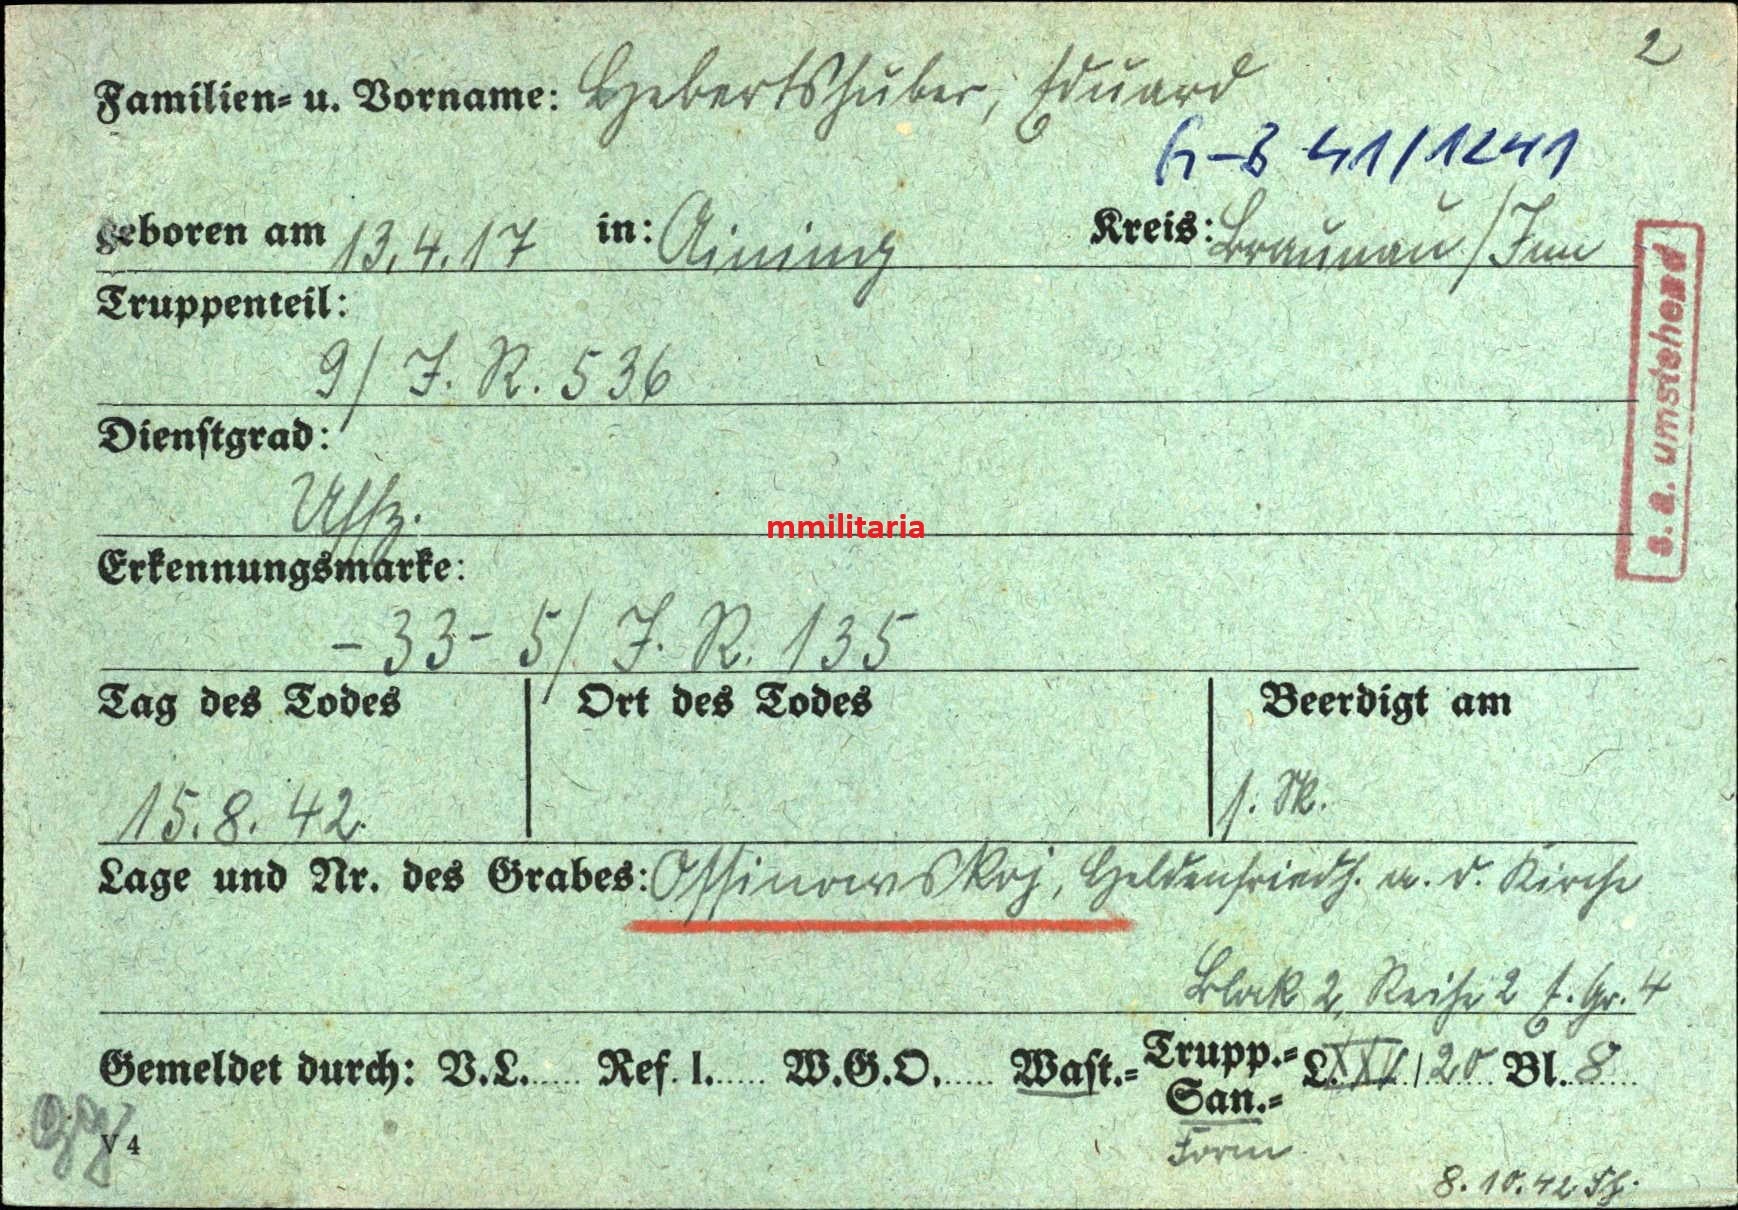 2
Familien= u. Vorname: Hebertshuber, Eduard
G-B 41/1241
geboren am 13.4.17 in: Aining Kreis: Braunau/Inn
Truppenteil:
9/ J. R. 536
Dienstgrad:
Uffz.
Erkennungsmarke:
- 33 - 5/ J. R. 135
Tag des Todes Ort des Todes Beerdigt am
15.8.42.
Lage und Nr. des Grabes: Ossinowskoj, Heldenfriedh. a. d. Kirche
Block 2, Reihe 2 E. Gr. 4
Gemeldet durch: V.L..... Ref. I..... W.G.O..... Wast.= Trupp.= San.= L. XXV/20 Bl. 8
Form
V 4
8.10.42
s. a. umstehend
mmilitaria